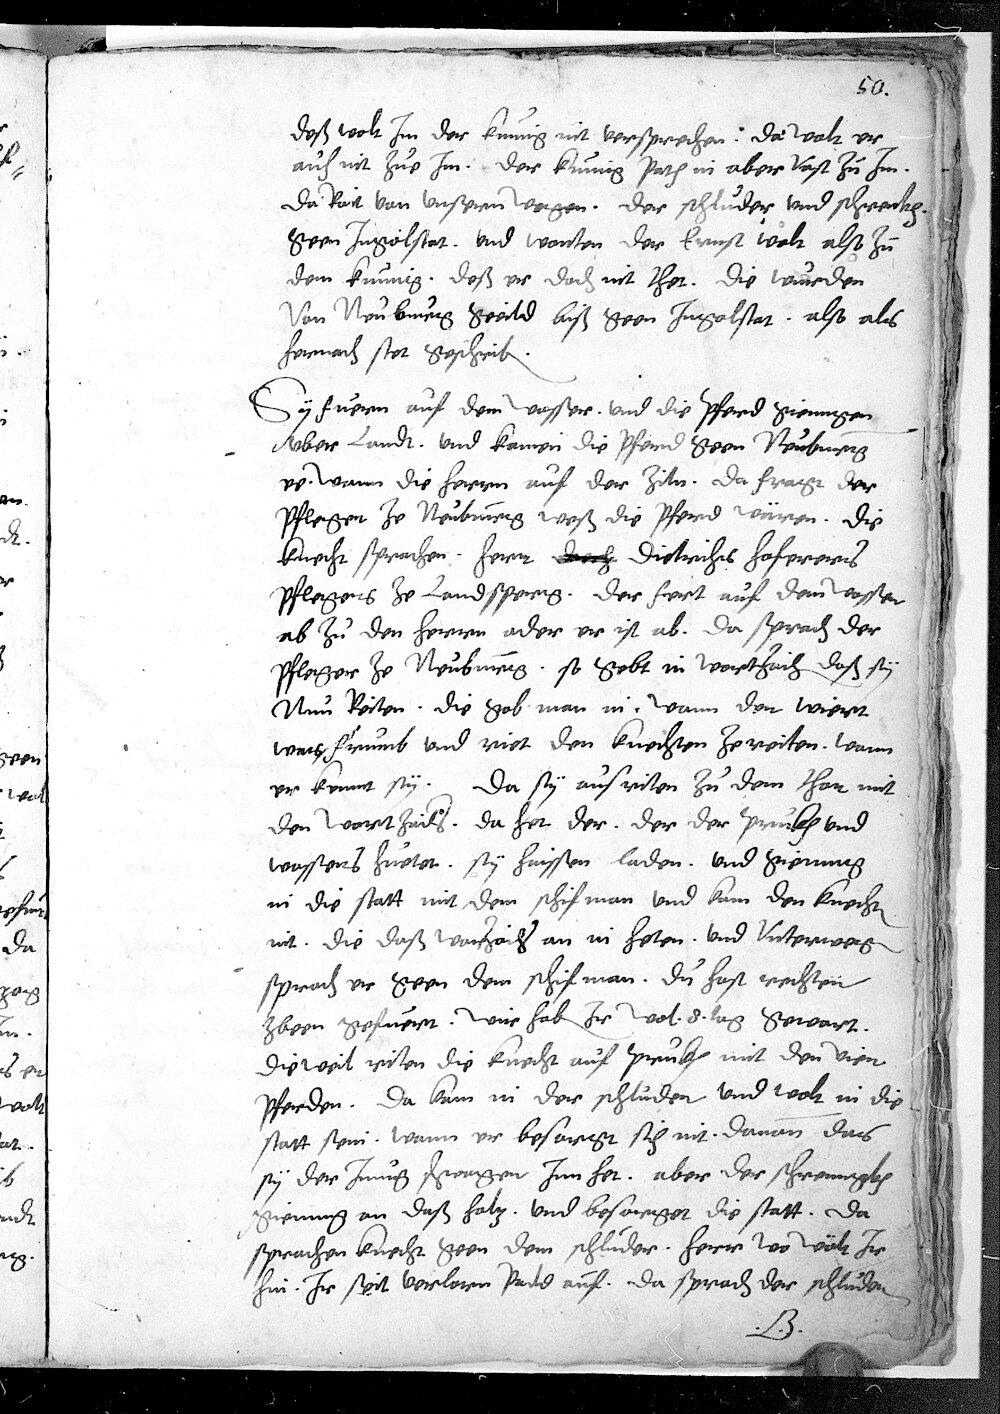 50.
deß wolt Im der kunig nit versprechen. da wolt er
auch nit zue Im. der kunig path in aber vast zu Im.
da Rait von unserm wegen. der schluder und schrenkh.
geen Ingolstat. und wonten der Ernst wolt also zu
dem kunig. deß er doch nit thet. die wurden
Von Neuburg gevild biß geen Ingolstat. also als
hernach stet geschrib.
Sy fuern auf dem wasser. und die Pferd giengen
uber Landt. und kamen die Pferd geen Neuburg
ee. wann die herrn auf der Ziln. da fragt der
Pfleger ze Neuburg weß die Pferd wären. die
knecht sprachen. herrn Dietrichs hoferers
Pflegers ze Landsperg. der fert auf dem wasser
ab zu den herrn oder er ist ab. da sprach der
Pfleger ze Neuburg. so gebt in wortzaich daß sy
Nun Reiten. die gab man in. wann der wiert
was frumb und riet den knechten ze reiten. wann
er kennt sy. da sy ausriten zu dem thor mit
den wortzaichn. da het der. der der pruckh und
wassers huetet. sy haissen laden. und gieng
in die statt mit dem schifman und kam den knechtn
nit. die daß wortzaich an in heten. und unterwegen
sprach er geen dem schifman. du hast rechten
zween gefuert. wir hab Ir wol. 8. tag gewart.
dieweil riten die knecht auf pruckh mit den vier
Pferden. da kam in der schluder und wolt in die
statt sein. wann er besorgt sich nit. danan das
sy der Junng herzogen Inn het. aber der schrennckh
gieng an daß holz. und besorget die statt. da
sprachen knecht geen dem schluder. herr wo wölt Ir
hin. Ir seit verlorn Paid auf. da sprach der schluder
.B.